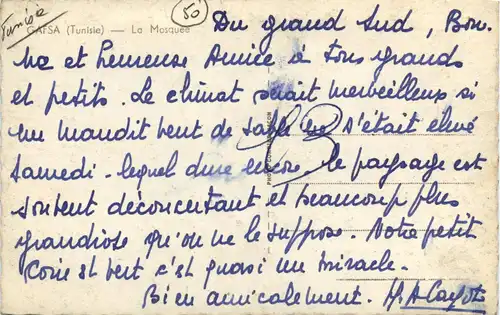 Tunisie
50
GAFSA (Tunisie) — La Mosquée
Du grand Sud, Bon-
ne et heureuse Année à tous grands
et petits. Le climat serait merveilleux si
un maudit vent de sable ne s'était élevé
samedi - lequel dure encore, le paysage est
souvent déconcertant et beaucoup plus
grandiose qu'on ne le suppose. Notre petit
coin est vert c'est quasi un miracle.
Bien amicalement.